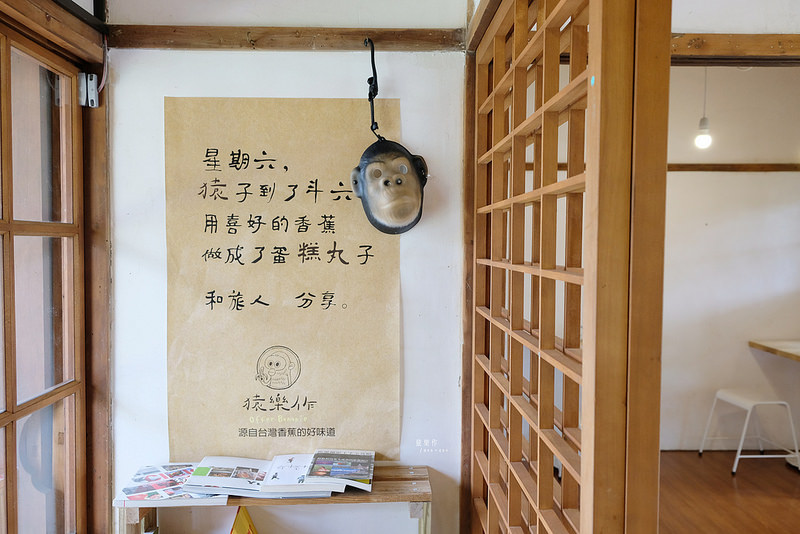 星期六，
猿子到了斗六
用喜好的香蕉
做成了蛋糕丸子
和旅人 分享。
猿樂作
源自台灣香蕉的好味道